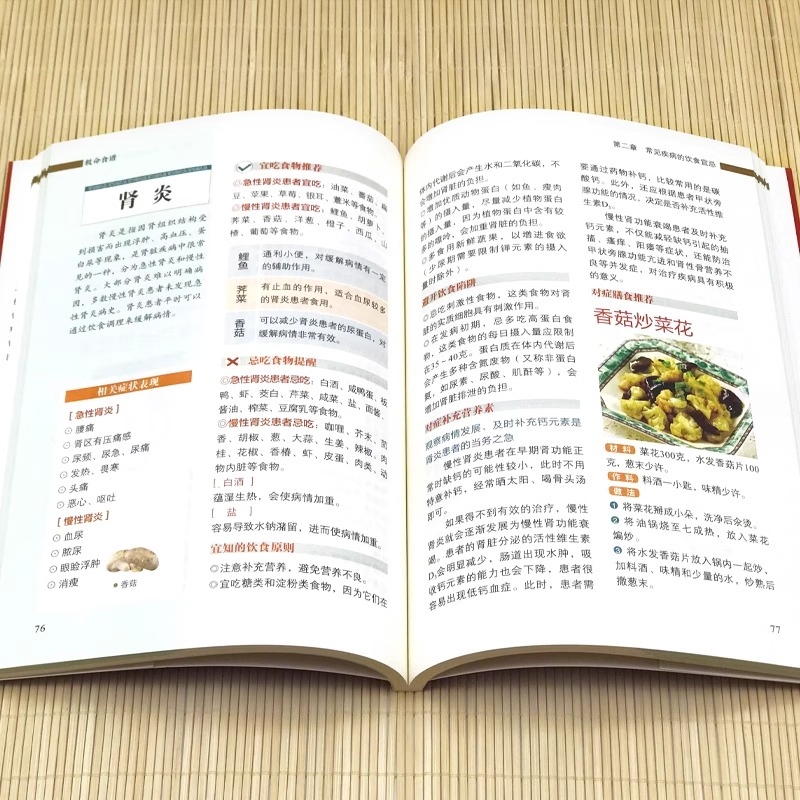 救命食谱
肾 炎
肾炎是指因肾组织结构受
到损害而出现浮肿、高血压、蛋
白尿等现象，是肾脏疾病中很常
见的一种，分为急性肾炎和慢性
肾炎。大部分肾炎难以明确病
因，多数慢性肾炎患者未发现急
性肾炎病史。肾炎患者平时可以
通过饮食调理来缓解病情。
相关症状表现
[急性肾炎]
⊙腰痛
⊙肾区有压痛感
⊙尿频、尿急、尿痛
⊙发热、畏寒
⊙头痛
⊙恶心、呕吐
[慢性肾炎]
⊙血尿
⊙脓尿
⊙眼睑浮肿
⊙消瘦
●香菇
76
宜吃食物推荐
◎急性肾炎患者宜吃：油菜、番茄、扁
豆、苹果、草莓、银耳、薏米等食物。
◎慢性肾炎患者宜吃：鲤鱼、胡萝卜、
荠菜、香菇、洋葱、橙子、西瓜、山
楂、葡萄等食物。
鲤鱼
通利小便，对缓解病情有一定
的辅助作用。
荠菜
有止血的作用，适合血尿较多
的肾炎患者食用。
香菇
可以减少肾炎患者的尿蛋白，对
缓解病情非常有效。
忌吃食物提醒
◎急性肾炎患者忌吃：白酒、咸鸭蛋、板
鸭、虾、茭白、芹菜、咸菜、盐、面酱、
酱油、榨菜、豆腐乳等食物。
◎慢性肾炎患者忌吃：咖喱、芥末、茴
香、胡椒、葱、大蒜、生姜、辣椒、肉
桂、花椒、香椿、虾、皮蛋、肉类、动
物内脏等食物。
[白酒]
蕴湿生热，会使病情加重。
[盐]
容易导致水钠潴留，进而使病情加重。
宜知的饮食原则
◎注意补充营养，避免营养不良。
◎宜吃糖类和淀粉类食物，因为它们在
第二章 常见疾病的饮食宜忌
体内代谢后会产生水和二氧化碳，不
会增加肾脏的负担。
◎增加优质动物蛋白（如鱼、瘦肉
等）的摄入量，尽量减少植物蛋白
的摄入量，因为植物蛋白中含有较
多的嘌呤，会加重肾脏的负担。
◎多食用新鲜蔬果，以增进食欲
（少尿期需要限制钾元素的摄入
量时除外）。
避开饮食陷阱
◎忌吃刺激性食物，这类食物对肾
脏的实质细胞具有刺激作用。
◎在发病初期，忌多吃高蛋白食
物，这类食物的每日摄入量应限制
在35～40克。蛋白质在体内代谢后
会产生多种含氮废物（又称非蛋白
氮，如尿素、尿酸、肌酐等），会
增加肾脏排泄的负担。
对症补充营养素
观察病情发展，及时补充钙元素是
肾炎患者的当务之急
慢性肾炎患者在早期肾功能正
常时缺钙的可能性较小，此时不用
特意补钙，经常晒太阳、喝骨头汤
即可。
如果得不到有效的治疗，慢性
肾炎就会逐渐发展为慢性肾功能衰
竭。患者的肾脏分泌的活性维生素
D₃会明显减少，肠道出现水肿，吸
收钙元素的能力也会下降，患者很
容易出现低钙血症。此时，患者需
要通过药物补钙，比较常用的是碳
酸钙。此外，还应根据患者甲状旁
腺功能的情况，决定是否补充活性维
生素D₃。
慢性肾功能衰竭患者及时补充
钙元素，不仅能减轻缺钙引起的抽
搐、瘙痒、阳痿等症状，还能防治
甲状旁腺功能亢进和肾性骨营养不
良等并发症，对治疗疾病具有积极
的意义。
对症膳食推荐
香菇炒菜花
材料 菜花300克，水发香菇片100
克，葱末少许。
作料 料酒一小匙，味精少许。
做法
1 将菜花掰成小朵，洗净后汆烫。
2 将油锅烧至七成热，放入菜花
煸炒。
3 将水发香菇片放入锅内一起炒，
加料酒、味精和少量的水，炒熟后
撒葱末。
77